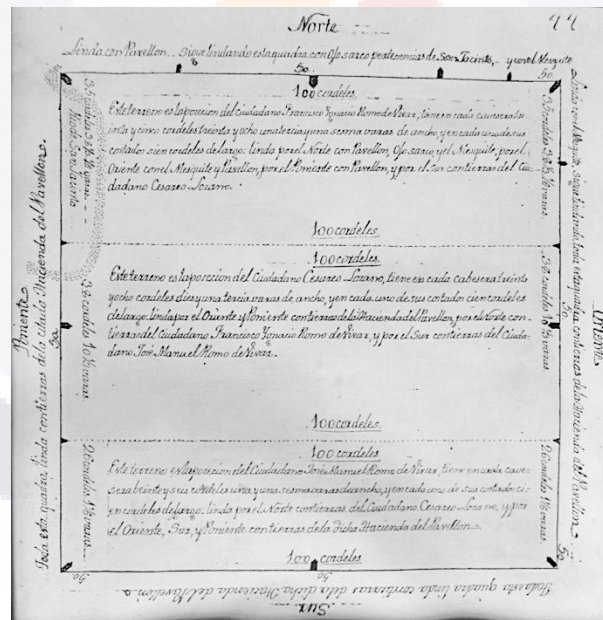 Norte
Linda con Pavellon. Sigue lindando esta quadra, con Ojo sarco pertenencias de San Jacinto, y con el Mesquite
50
50
100 cordeles
Este terreno es la porcion del Ciudadano Francisco Ygnacio Romo de Vivar, tiene en cada cavesera tre
inta y cinco cordeles treinta y ocho una tercia y una sesma varas de ancho, y en cada uno de sus
costados sien cordeles de largo: linda por el Norte con Pavellon, Ojo sarco, y el Mesquite, por el
Oriente con el Mesquite y Pavellon, por el Poniente con Pavellon, y por el Sur con tierras del Ciu-
dadano Cesareo Lozano.
100 cordeles
100 cordeles
Este terreno es la porcion del Ciudadano Cesareo Lozano, tiene en cada cabesera treinta
y ocho cordeles dies y una tercia varas de ancho, y en cada uno de sus costados cien cordeles
de largo: linda por el Oriente y Poniente con tierras de la Hacienda del Pavellon, por el Norte con
tierras del Ciudadano Francisco Ygnacio Romo de Vivar, y por el Sur con tierras del Ciuda-
dano José Manuel Romo de Vivar.
100 cordeles
100 cordeles
Este terreno es la porcion del Ciudadano José Manuel Romo de Vivar, tiene en cada cave-
sera beinte y seis cordeles una y una sesma varas de ancho, y en cada uno de sus costados ci-
en cordeles de largo: linda por el Norte con tierras del Ciudadano Cesareo Lozano, y por
el Oriente, Sur, y Poniente con tierras de la dicha Hacienda del Pavellon.
100 cordeles
50
50
50
Toda esta quadra linda con tierras de la dicha Hacienda del Pavellon
Sur
Poniente
50
Toda esta quadra, linda con tierras de la citada Hacienda del Pavellon.
Rio de San Jacinto
38 cordeles 10 1/3 varas
26 cordeles 1 1/6 varas
Oriente
50
Linda con el Mesquite, sigue lindando toda esta quadra con tierras de la Hacienda del Pavellon
38 cordeles 10 1/3 varas
26 cordeles 1 1/6 varas